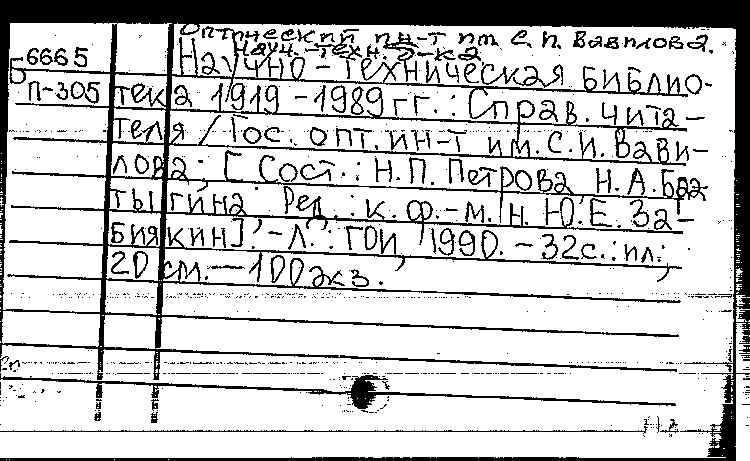 Оптический ин-т им. С.И. Вавилова.
Науч.-техн. б-ка
Б 6665
П-305
Научно-техническая библио-
тека 1919-1989 гг. : Справ. чита-
теля / Гос. опт. ин-т им. С.И. Вави-
лова; [Сост.: Н.П. Петрова, Н.А.
тыгина Ред.: к. ф.-м. н. Ю.Е. За-
биякин]. - Л.: ГОИ, 1990. - 32с. : ил.;
20 см. - 100 экз.